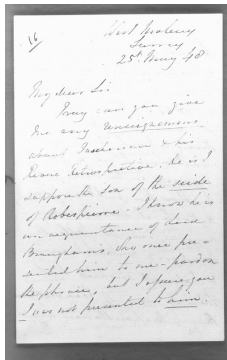 16
West Molesey
Surrey
25th May 48
My dear Sir
Pray can you give
me any renseignemens
about Taschereau & his
Revue Retrospective. He is I
suppose the son of the seide
of Robespierre. I know he is
an acquaintance of Lord
Brougham's, who once pre-
sented him to me - pardon
the phrase, but I assure you
I was not presented to him.